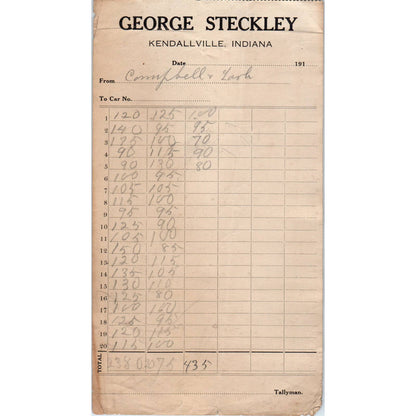 GEORGE STECKLEY
KENDALLVILLE, INDIANA
Date 191
From Campbell &
To Car No.
1 120 125 100
2 140 95 95
3 175 100 70
4 90 115 90
5 90 130 80
6 100 95
7 105 105
8 115 100
9 95 95
10 125 90
11 105 100
12 150 85
13 120 115
14 135 105
15 130 110
16 125 80
17 100 100
18 125 95
19 120 115
20 115 100
TOTAL 2380 2075 435
Tallyman.